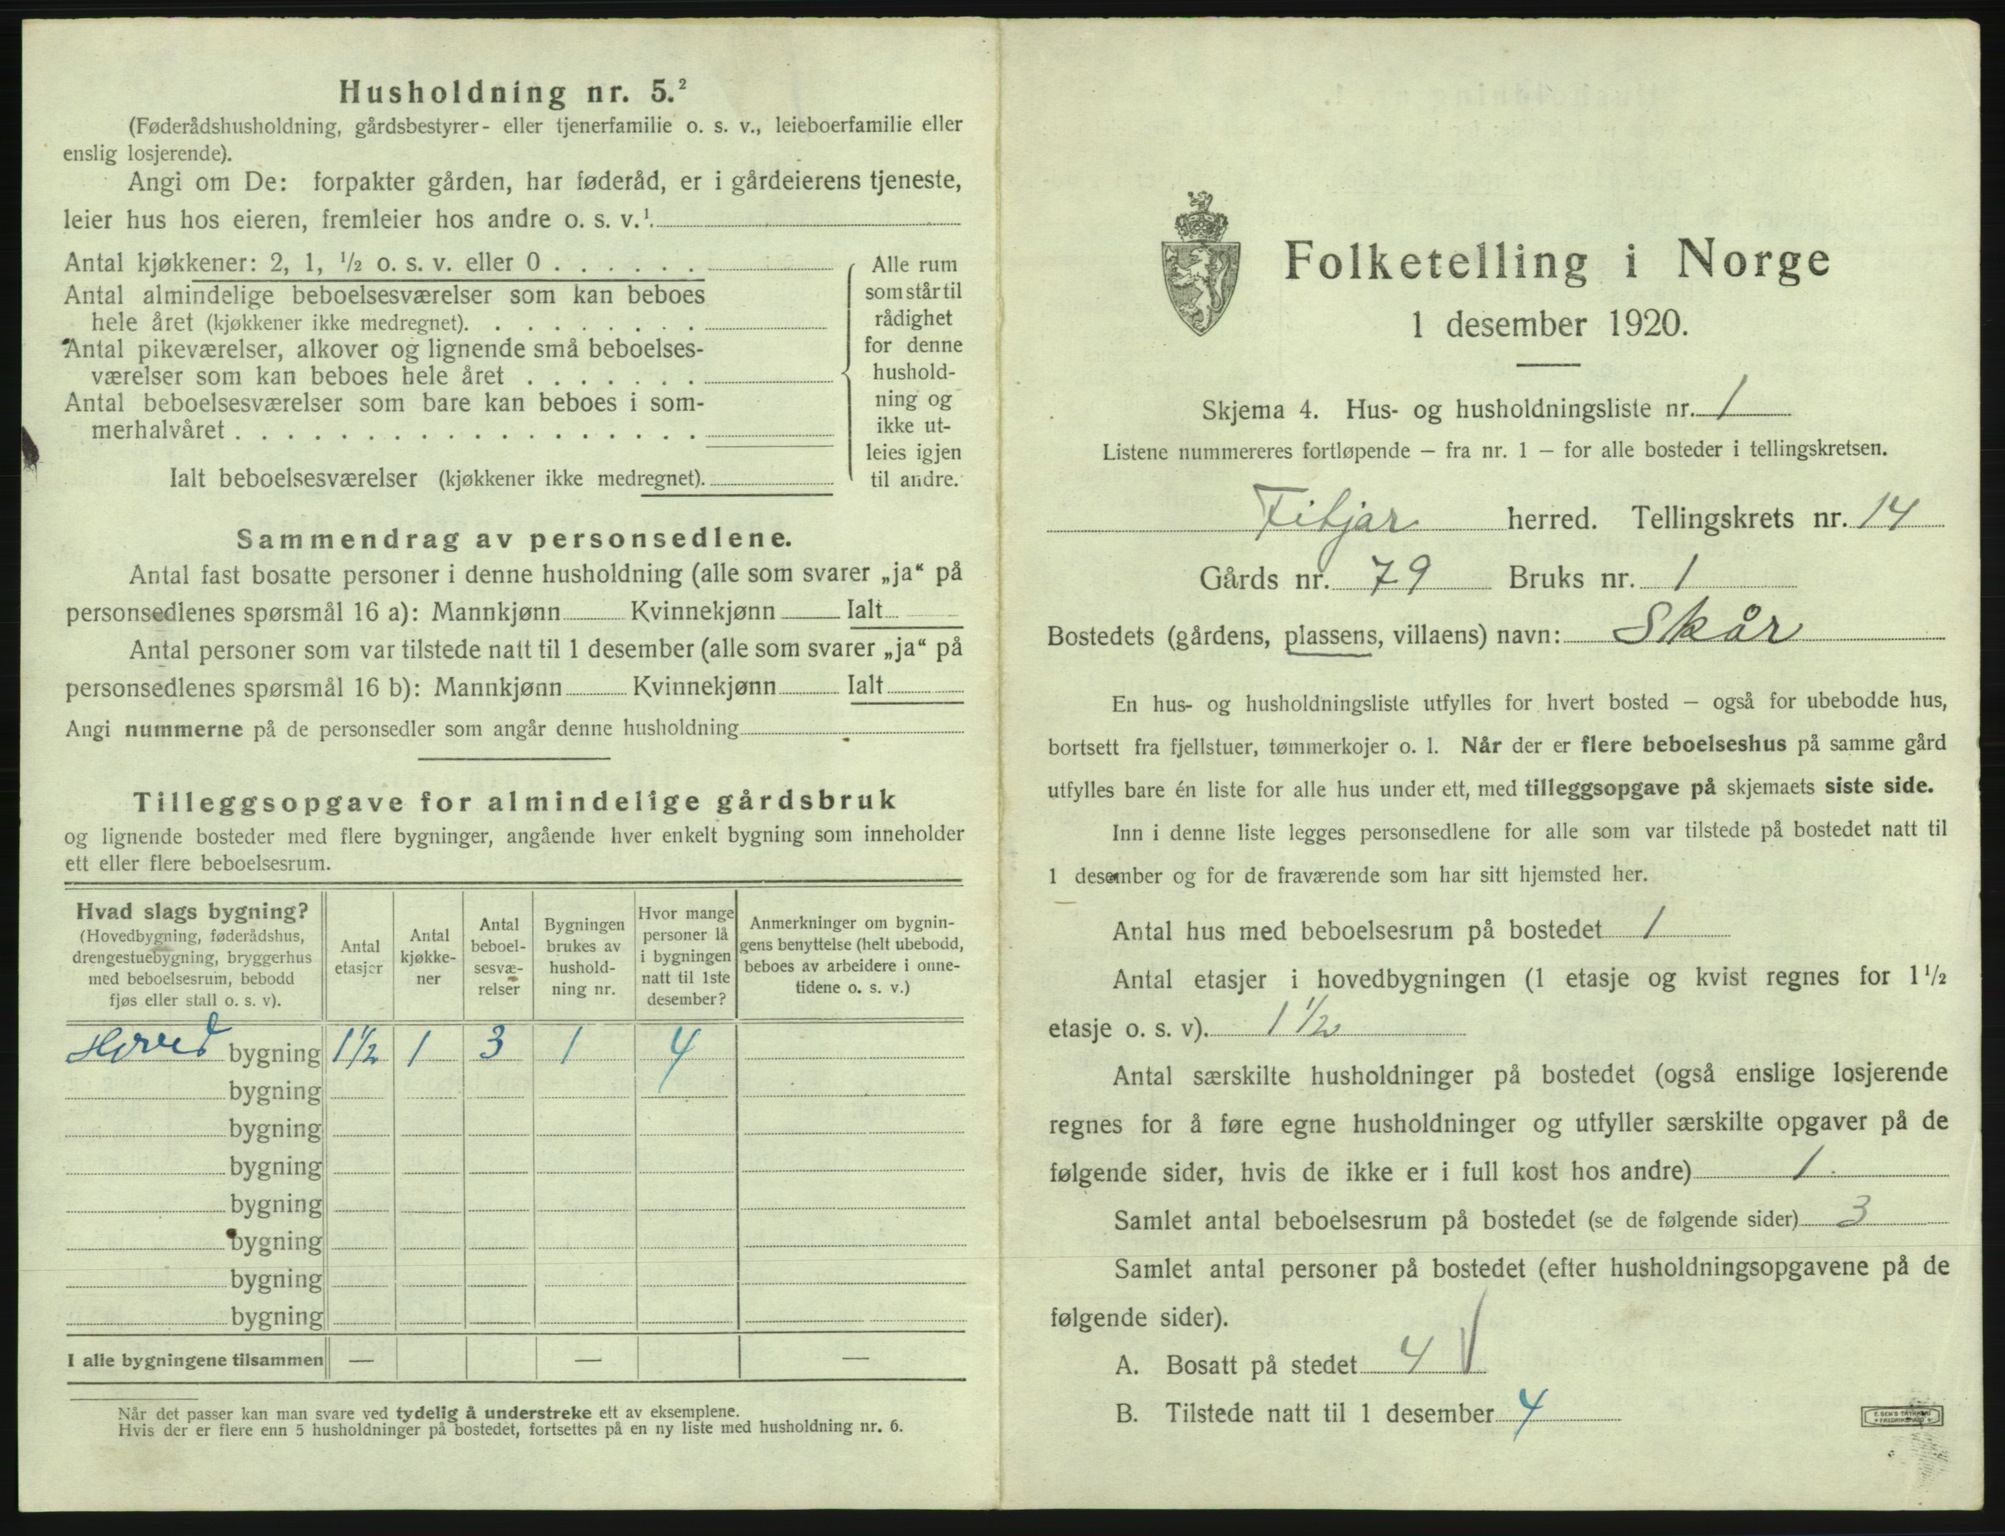 Husholdning nr. 5.²
(Føderådshusholdning, gårdsbestyrer- eller tjenerfamilie o. s. v., leieboerfamilie eller
enslig losjerende).
Angi om De: forpakter gården, har føderåd, er i gårdeierens tjeneste,
leier hus hos eieren, fremleier hos andre o. s. v.¹
Antal kjøkkener: 2, 1, ½ o. s. v. eller 0 . . . . . .
Antal almindelige beboelsesværelser som kan beboes
hele året (kjøkkener ikke medregnet). . . . . . . . .
Antal pikeværelser, alkover og lignende små beboelses-
værelser som kan beboes hele året . . . . . . .
Antal beboelsesværelser som bare kan beboes i som-
merhalvåret . . . . . . . . . . . . . . . . . .
Ialt beboelsesværelser (kjøkkener ikke medregnet).
Alle rum
som står til
rådighet
for denne
hushold-
ning og
ikke ut-
leies igjen
til andre.
Sammendrag av personsedlene.
Antal fast bosatte personer i denne husholdning (alle som svarer „ja“ på
personsedlenes spørsmål 16 a): Mannkjønn Kvinnekjønn Ialt
Antal personer som var tilstede natt til 1 desember (alle som svarer „ja“ på
personsedlenes spørsmål 16 b): Mannkjønn Kvinnekjønn Ialt
Angi nummerne på de personsedler som angår denne husholdning
Tilleggsopgave for almindelige gårdsbruk
og lignende bosteder med flere bygninger, angående hver enkelt bygning som inneholder
ett eller flere beboelsesrum.
Hvad slags bygning?
(Hovedbygning, føderådshus,
drengestuebygning, bryggerhus
med beboelsesrum, bebodd
fjøs eller stall o. s. v).
Antal
etasjer
Antal
kjøkke-
ner
Antal
beboel-
sesvæ-
relser
Bygningen
brukes av
hushold-
ning nr.
Hvor mange
personer lå
i bygningen
natt til 1ste
desember?
Anmerkninger om bygnin-
gens benyttelse (helt ubebodd,
beboes av arbeidere i onne-
tidene o. s. v.)
Hoved bygning 1½ 1 3 1 4
bygning
bygning
bygning
bygning
bygning
bygning
bygning
I alle bygningene tilsammen — — —
Når det passer kan man svare ved tydelig å understreke ett av eksemplene.
Hvis der er flere enn 5 husholdninger på bostedet, fortsettes på en ny liste med husholdning nr. 6.
Folketelling i Norge
1 desember 1920.
Skjema 4. Hus- og husholdningsliste nr. 1
Listene nummereres fortløpende — fra nr. 1 — for alle bosteder i tellingskretsen.
Fitjar herred. Tellingskrets nr. 14
Gårds nr. 79 Bruks nr. 1
Bostedets (gårdens, plassens, villaens) navn: Skår
En hus- og husholdningsliste utfylles for hvert bosted — også for ubebodde hus,
bortsett fra fjellstuer, tømmerkojer o. l. Når der er flere beboelseshus på samme gård
utfylles bare én liste for alle hus under ett, med tilleggsopgave på skjemaets siste side.
Inn i denne liste legges personsedlene for alle som var tilstede på bostedet natt til
1 desember og for de fraværende som har sitt hjemsted her.
Antal hus med beboelsesrum på bostedet 1
Antal etasjer i hovedbygningen (1 etasje og kvist regnes for 1½
etasje o. s. v). 1½
Antal særskilte husholdninger på bostedet (også enslige losjerende
regnes for å føre egne husholdninger og utfyller særskilte opgaver på de
følgende sider, hvis de ikke er i full kost hos andre) 1
Samlet antal beboelsesrum på bostedet (se de følgende sider) 3
Samlet antal personer på bostedet (efter husholdningsopgavene på de
følgende sider).
A. Bosatt på stedet 4 √
B. Tilstede natt til 1 desember 4